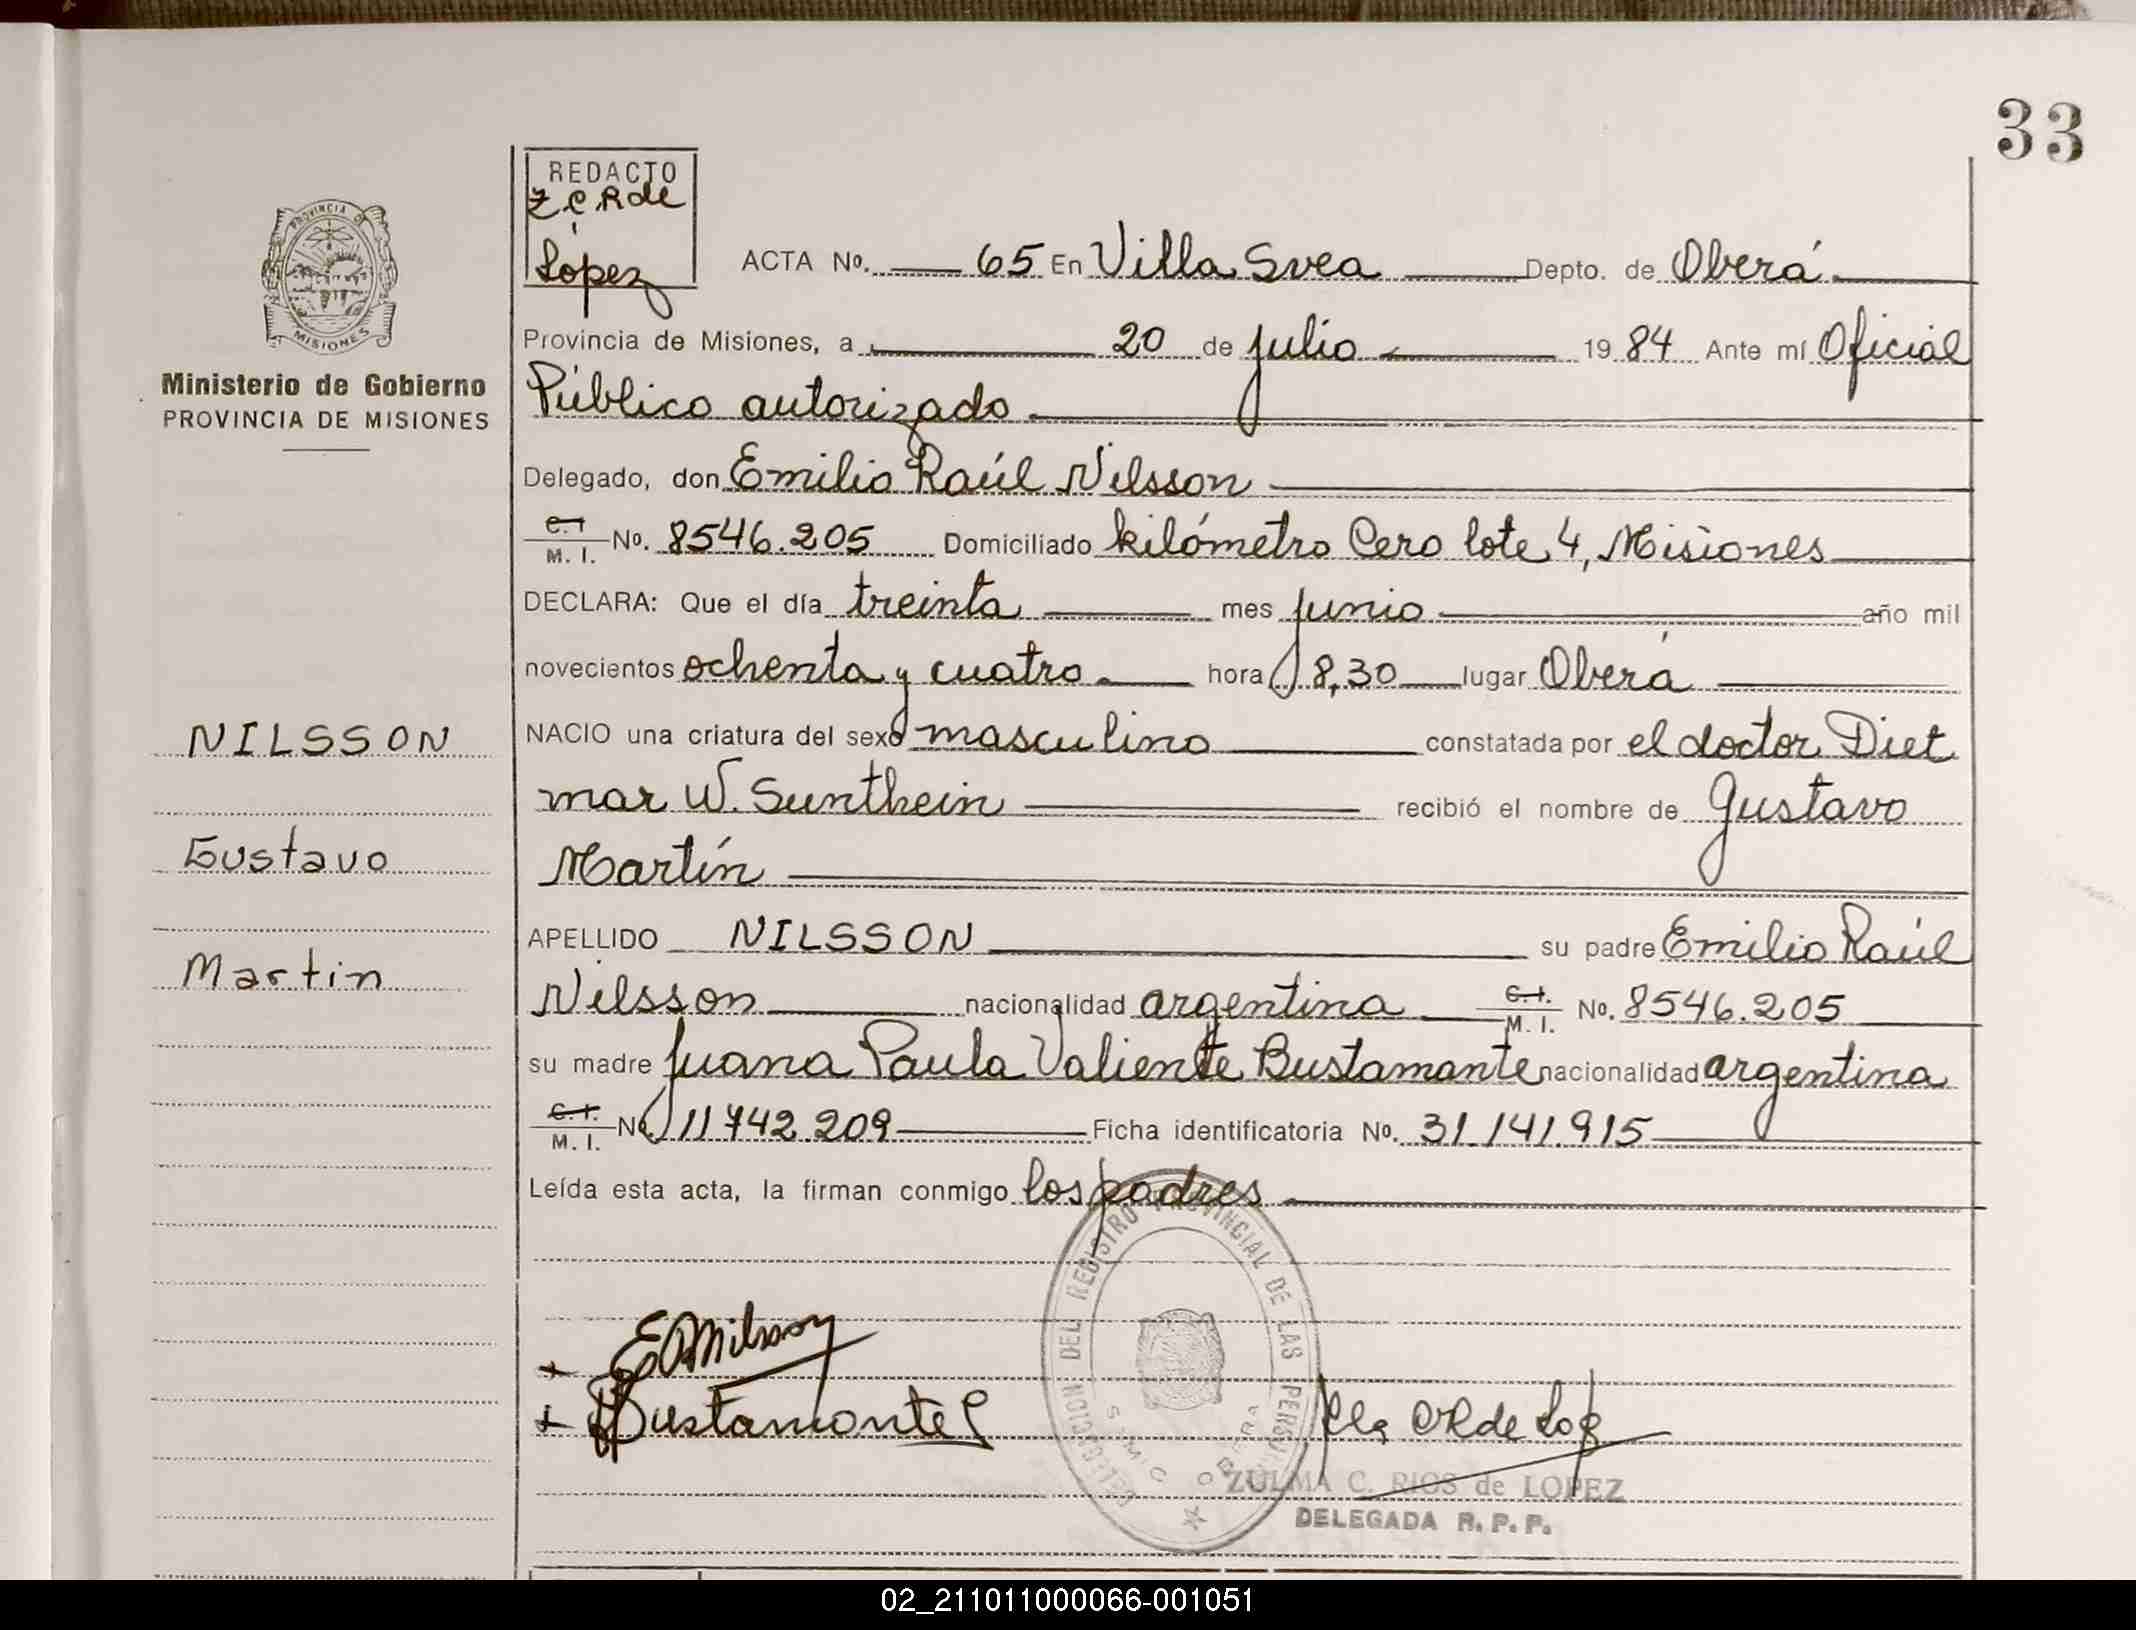 33
REDACTO
Z.C.R de
López
ACTA No. 65 En Villa Svea Depto. de Oberá
Provincia de Misiones, a 20 de julio 1984 Ante mí Oficial
Público autorizado
Delegado, don Emilio Raúl Nilsson
C.I. M. I. No. 8546.205 Domiciliado kilómetro Cero lote 4, Misiones
DECLARA: Que el día treinta mes junio año mil
novecientos ochenta y cuatro hora 8,30 lugar Oberá
NACIO una criatura del sexo masculino constatada por el doctor Diet
mar W. Sunthein recibió el nombre de Gustavo
Martín
APELLIDO NILSSON su padre Emilio Raúl
Nilsson nacionalidad argentina C.I. M. I. No. 8546.205
su madre Juana Paula Valiente Bustamante nacionalidad argentina
C.I. M. I. No. 11742.209 Ficha identificatoria No. 31.141.915
Leída esta acta, la firman conmigo los padres
PROVINCIA DE
MISIONES
Ministerio de Gobierno
PROVINCIA DE MISIONES
NILSSON
Gustavo
Martin
ERNilsson
Bustamante
DELEGACION DEL REGISTRO PROVINCIAL DE LAS PERSONAS
OBERA
ZULMA C. RIOS de LOPEZ
DELEGADA R. P. P.
02_211011000066-001051